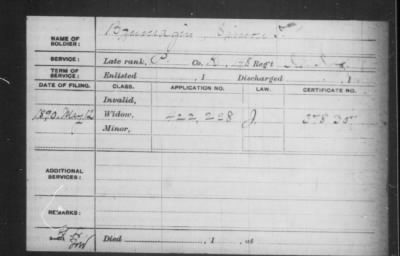 NAME OF SOLDIER: Brumagin, Simon
SERVICE: Late rank, Co. Reg't
TERM OF SERVICE: Enlisted , 1 Discharged , 1
DATE OF FILING. CLASS. APPLICATION NO. LAW. CERTIFICATE NO.
Invalid,
1890, May 12 Widow, 422,228
Minor,
ADDITIONAL SERVICES:
REMARKS:
Died , 1 , at